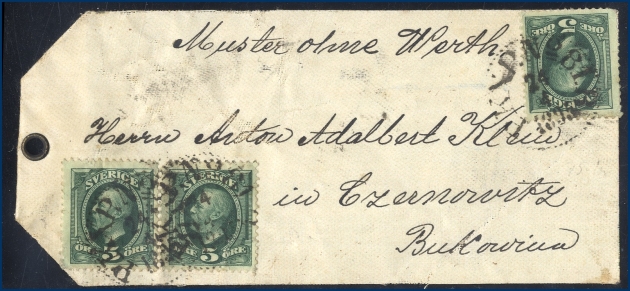 Muster ohne Werth
5
ÖRE
5
ÖRE
Herrn Anton Adalbert Klein
SVERIGE
SVERIGE
in Czernowitz
5
ÖRE
5
ÖRE
Bukowina